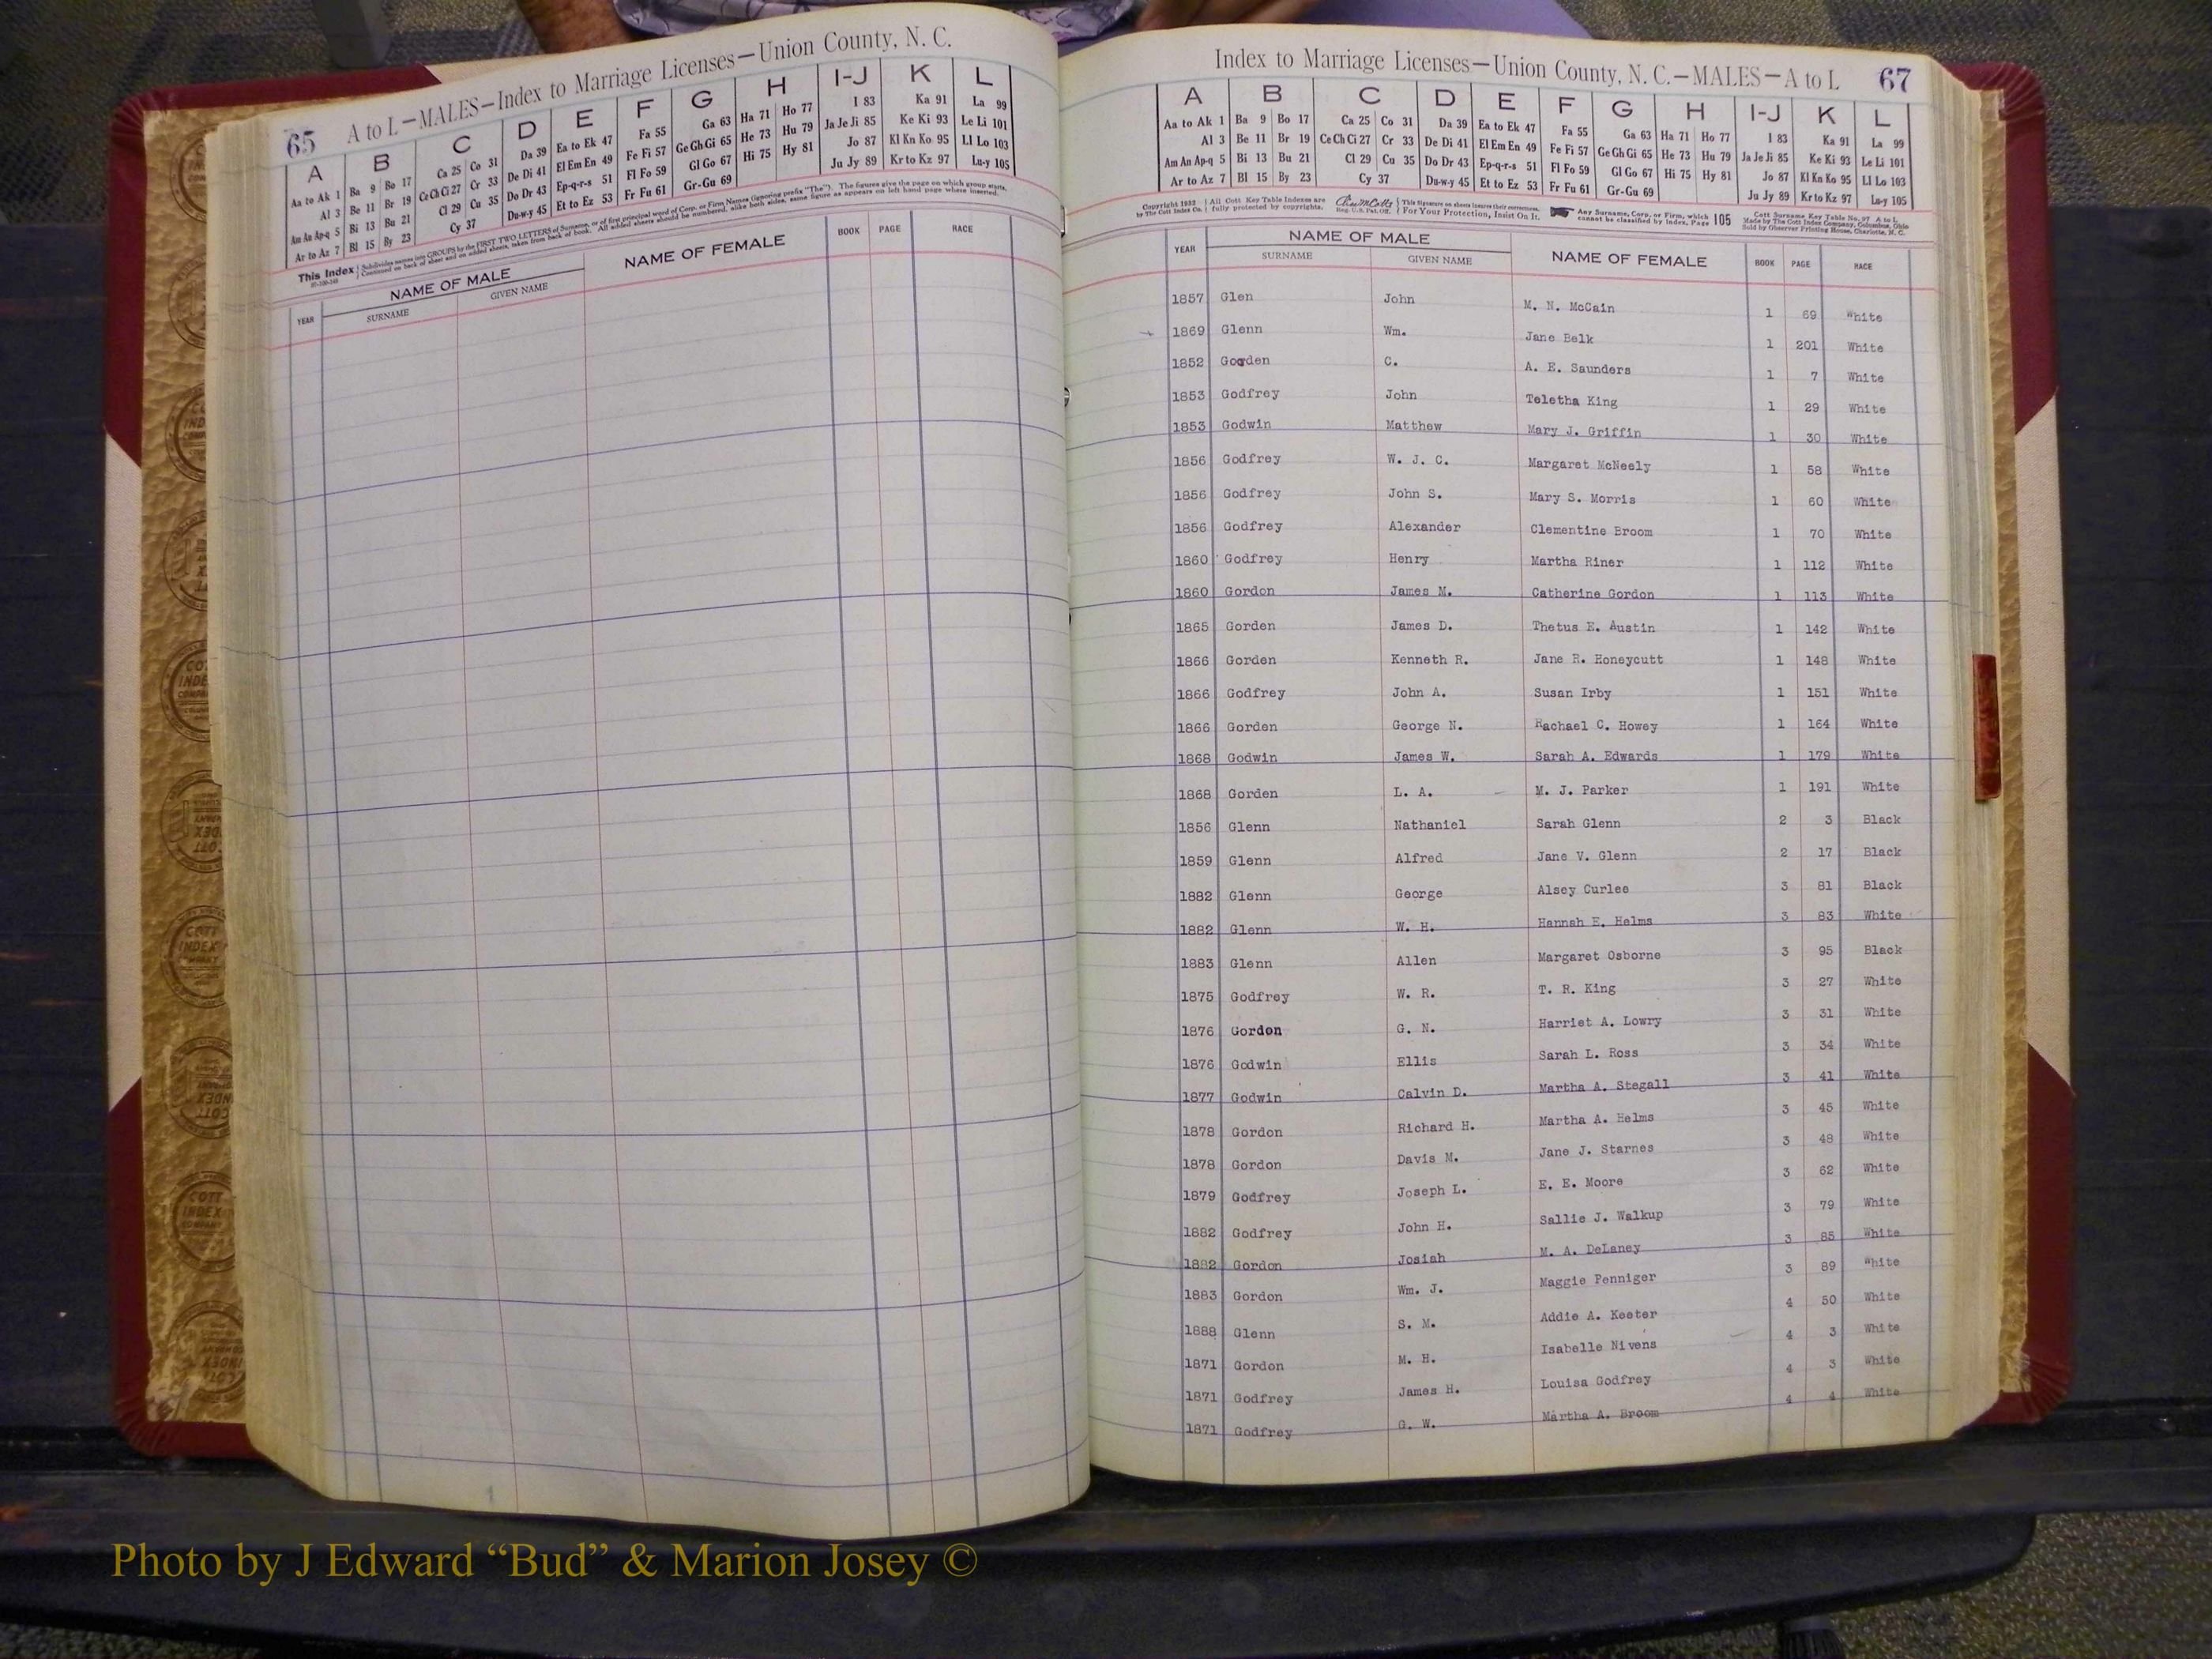 65 A to L—MALES—Index to Marriage Licenses—Union County, N. C.
A B C D E F G H I-J K L
Aa to Ak 1 Ba 9 Bo 17 Ca 25 Co 31 Da 39 Ea to Ek 47 Fa 55 Ga 63 Ha 71 Ho 77 I 83 Ka 91 La 99
Al 3 Be 11 Br 19 Ce Ch Ci 27 Cr 33 De Di 41 El Em En 49 Fe Fi 57 Ge Gh Gi 65 He 73 Hu 79 Ja Je Ji 85 Ke Ki 93 Le Li 101
Am An Ap-q 5 Bi 13 Bu 21 Cl 29 Cu 35 Do Dr 43 Ep-q-r-s 51 Fl Fo 59 Gl Go 67 Hi 75 Hy 81 Jo 87 Kl Kn Ko 95 Ll Lo 103
Ar to Az 7 Bl 15 By 23 Cy 37 Du-w-y 45 Et to Ez 53 Fr Fu 61 Gr-Gu 69 Ju Jy 89 Kr to Kz 97 Lu-y 105
This Index Subdivides names into GROUPS by the FIRST TWO LETTERS of Surname, or of first principal word of Corp. or Firm Names (ignoring prefix "The"). The figures give the page on which group starts.
Continued on back of sheet and on added sheets, taken from back of book. All added sheets should be numbered, alike both sides, same figure as appears on left hand page where inserted.
YEAR NAME OF MALE NAME OF FEMALE BOOK PAGE RACE
SURNAME GIVEN NAME
Index to Marriage Licenses—Union County, N. C.—MALES—A to L 67
A B C D E F G H I-J K L
Aa to Ak 1 Ba 9 Bo 17 Ca 25 Co 31 Da 39 Ea to Ek 47 Fa 55 Ga 63 Ha 71 Ho 77 I 83 Ka 91 La 99
Al 3 Be 11 Br 19 Ce Ch Ci 27 Cr 33 De Di 41 El Em En 49 Fe Fi 57 Ge Gh Gi 65 He 73 Hu 79 Ja Je Ji 85 Ke Ki 93 Le Li 101
Am An Ap-q 5 Bi 13 Bu 21 Cl 29 Cu 35 Do Dr 43 Ep-q-r-s 51 Fl Fo 59 Gl Go 67 Hi 75 Hy 81 Jo 87 Kl Kn Ko 95 Ll Lo 103
Ar to Az 7 Bl 15 By 23 Cy 37 Du-w-y 45 Et to Ez 53 Fr Fu 61 Gr-Gu 69 Ju Jy 89 Kr to Kz 97 Lu-y 105
Copyright 1932 All Cott Key Table Indexes are This Signature on sheets insures their correctness. Any Surname, Corp. or Firm, which 105 Cott Surname Key Table No. 97 A to L
by The Cott Index Co. fully protected by copyrights. Reg. U.S. Pat. Off. For Your Protection, Insist On It. cannot be classified by Index, Page Made by The Cott Index Company, Columbus, Ohio
Sold by Observer Printing House, Charlotte, N. C.
YEAR NAME OF MALE NAME OF FEMALE BOOK PAGE RACE
SURNAME GIVEN NAME
1857 Glen John M. N. McCain 1 69 White
1869 Glenn Wm. Jane Belk 1 201 White
1852 Gorden C. A. E. Saunders 1 7 White
1853 Godfrey John Teletha King 1 29 White
1853 Godwin Matthew Mary J. Griffin 1 30 White
1856 Godfrey W. J. C. Margaret McNeely 1 58 White
1856 Godfrey John S. Mary S. Morris 1 60 White
1856 Godfrey Alexander Clementine Broom 1 70 White
1860 Godfrey Henry Martha Riner 1 112 White
1860 Gordon James M. Catherine Gordon 1 113 White
1865 Gorden James D. Thetus E. Austin 1 142 White
1866 Gorden Kenneth R. Jane R. Honeycutt 1 148 White
1866 Godfrey John A. Susan Irby 1 151 White
1866 Gorden George N. Rachael C. Howey 1 164 White
1868 Godwin James W. Sarah A. Edwards 1 179 White
1868 Gorden L. A. M. J. Parker 1 191 White
1856 Glenn Nathaniel Sarah Glenn 2 3 Black
1859 Glenn Alfred Jane V. Glenn 2 17 Black
1882 Glenn George Alsey Curlee 3 81 Black
1882 Glenn W. H. Hannah E. Helms 3 83 White
1883 Glenn Allen Margaret Osborne 3 95 Black
1875 Godfrey W. R. T. R. King 3 27 White
1876 Gordon G. N. Harriet A. Lowry 3 31 White
1876 Godwin Ellis Sarah L. Ross 3 34 White
1877 Godwin Calvin D. Martha A. Stegall 3 41 White
1878 Gordon Richard H. Martha A. Helms 3 45 White
1878 Gordon Davis M. Jane J. Starnes 3 48 White
1879 Godfrey Joseph L. E. E. Moore 3 62 White
1882 Godfrey John H. Sallie J. Walkup 3 79 White
1882 Gordon Josiah M. A. DeLaney 3 85 White
1883 Gordon Wm. J. Maggie Penniger 3 89 White
1888 Glenn S. M. Addie A. Keeter 4 50 White
1871 Gordon M. H. Isabelle Nivens 4 3 White
1871 Godfrey James H. Louisa Godfrey 4 3 White
1871 Godfrey G. W. Martha A. Broom 4 4 White
Photo by J Edward “Bud” & Marion Josey ©